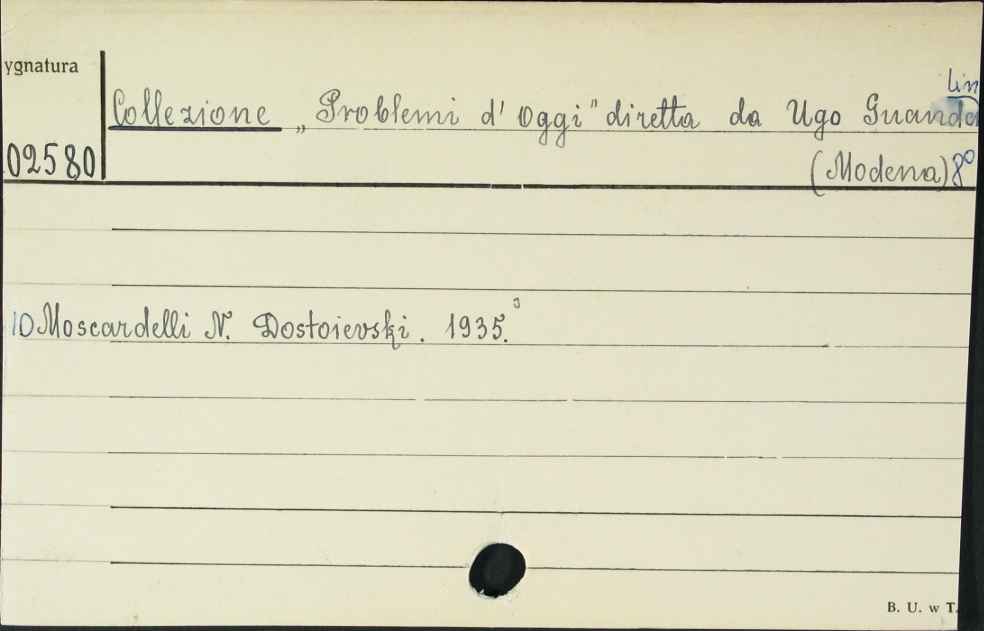 ygnatura
lin
Collezione „Problemi d' Oggi" diretta da Ugo Guanda
02580
(Modena) 8°
10 Moscardelli N. Dostoievski. 1935.
B. U. w T.